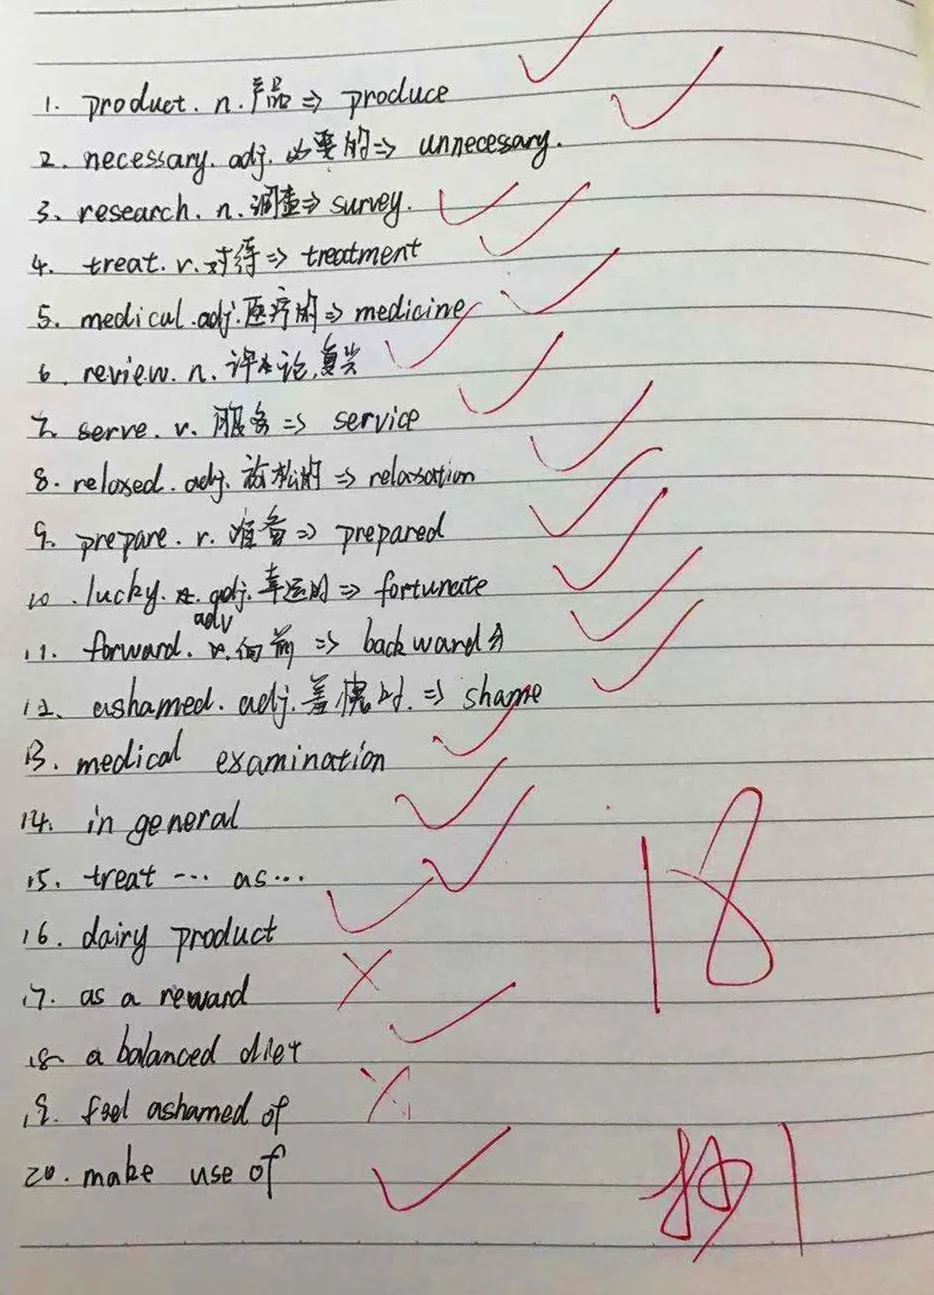 1. product. n. 产品 => produce
2. necessary. adj. 必要的 => unnecessary.
3. research. n. 调查 => survey.
4. treat. v. 对待 => treatment
5. medical. adj. 医疗的 => medicine
6. review. n. 评论, 复习
7. serve. v. 服务 => service
8. relaxed. adj. 放松的 => relaxation
9. prepare. v. 准备 => prepared
10. lucky. adj. 幸运的 => fortunate
11. forward. adv 向前 => backward
12. ashamed. adj. 羞愧的. => shame
13. medical examination
14. in general
15. treat ... as...
16. dairy product
17. as a reward
18. a balanced diet
19. feel ashamed of
20. make use of
18
抄1